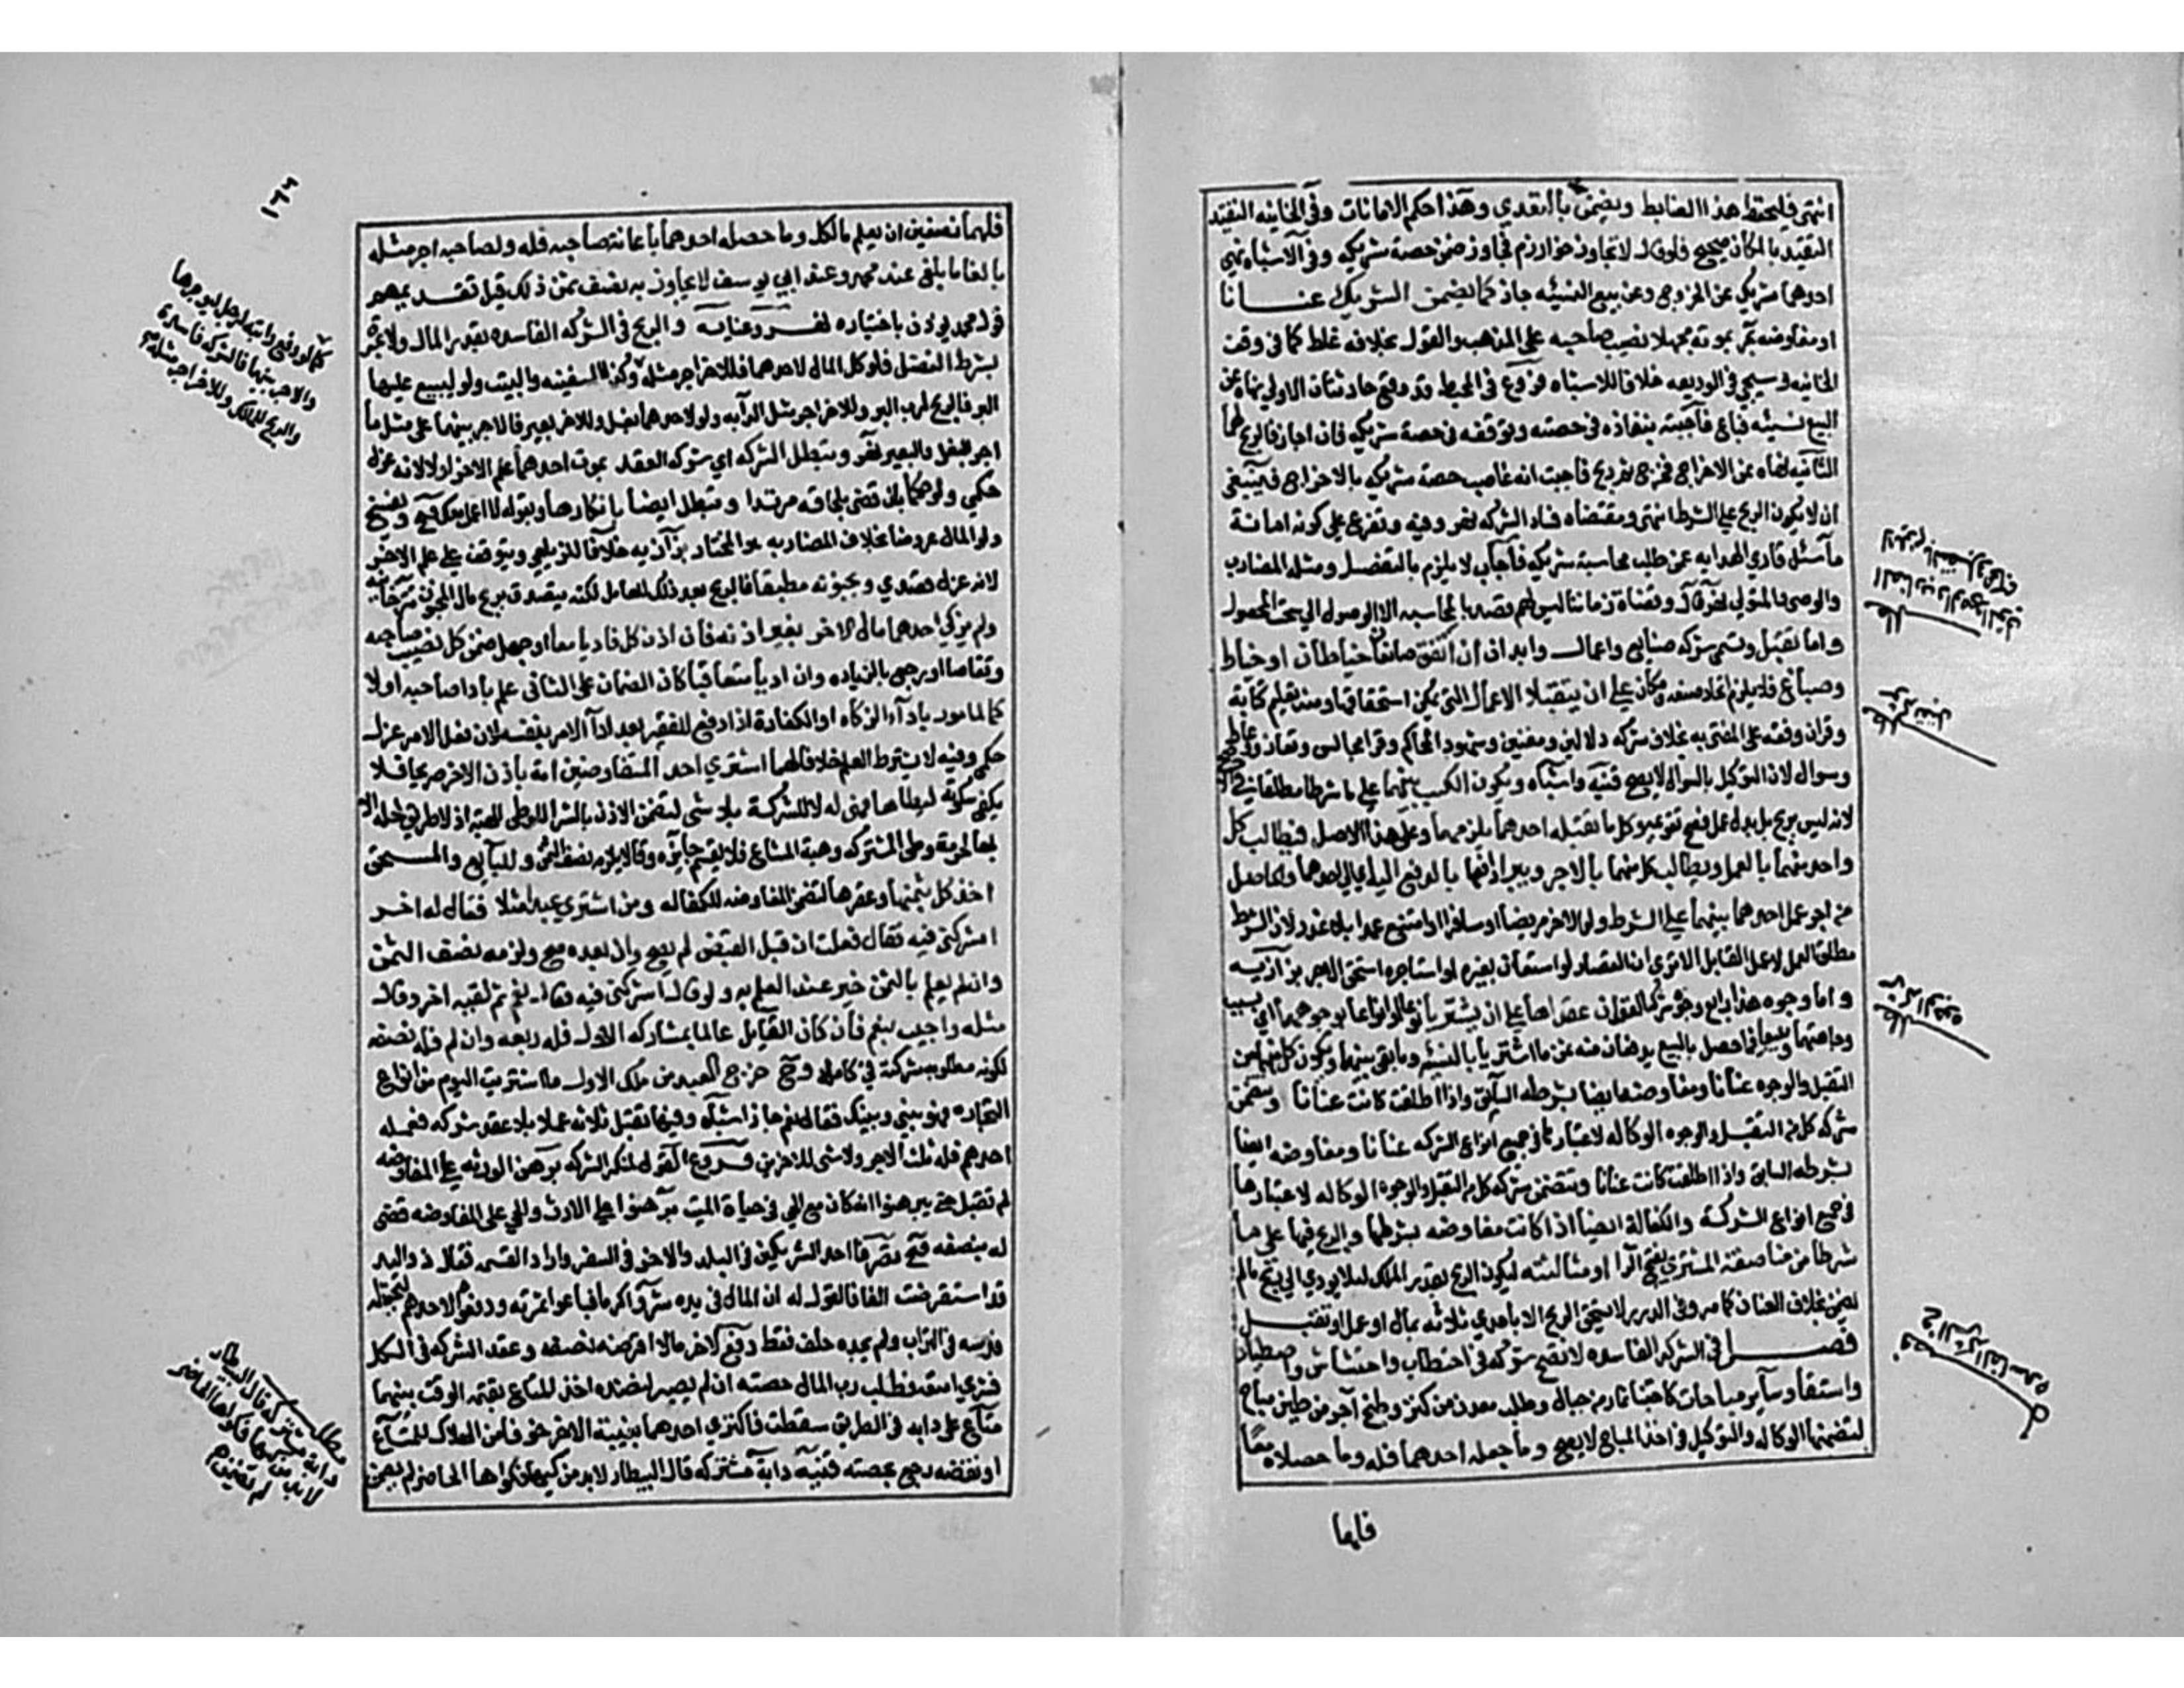 انتهى فليحفظ هذا الضابط ويضمن بالتعدي وهذا حكم الامانات وفي الخانيه التقيد
التقيد بالمكان صحيح فلو قال لا تجاوز خوارزم فجاوز ضمن حصة شريكه وفي الاشباه نهى
احدهما شريكه عن الخروج وعن بيع النسيئه جاز كما يضمن الشريك عنانا
او مفاوضه بموته مجهلا نصيب صاحبه على المذهب والقول بخلافه غلط كما في وقف
الخانيه وسيجي في الوديعه خلافا للاشباه فروع في المحيط قد وقع حادثتان الاولى نهاه عن
البيع نسيئه فباع فاجبت بنفاذه في حصته وتوقفه في حصة شريكه فان اجاز فالربح لهما
الثانيه نهاه عن الاخراج فخرج ثم ربح فاجبت انه غاصب حصة شريكه بالاخراج فينبغي
ان لا يكون الربح على الشرط انتهى ومقتضاه فساد الشركه نهر وفيه وتفرع على كونه امانة
ما سئل قاري الهدايه عن طلب محاسبة شريكه فاجاب لا يلزم بالتفصيل ومثله المضارب
والوصي والمتولي نهر وقضاة زماننا ليس لهم قصد بالمحاسبه الا الوصول الى سحت المحصول
واما تقبل وتسمى شركه صنايع واعمال وابدان ان اتفق صانعان خياطان او خياط
وصباغ فلا يلزم اتحاد صنعه ومكان على ان يتقبلا الاعمال التي يمكن استحقاقها ومنه تعليم كتابه
وقران وفقه على المفتى به بخلاف شركه دلالين ومغنين وشهود المحاكم وقرا مجالس وتعاز ووعاظ
وسوال لان التوكيل بالسوال لا يصح قنيه واشباه ويكون الكسب بينهما على ما شرطا مطلقا في الاصح
لانه ليس بربح بل بدل عمل فصح تقويمه وكل ما تقبله احدهما يلزمهما وعلى هذا الاصل فيطالب كل
واحد منهما بالعمل ويطالب كل منهما بالاجر ويبرا دافعها بالدفع اليه اي الى احدهما والحاصل
من اجر عمل احدهما بينهما على الشرط ولو الاخر مريضا او مسافرا او امتنع عمدا بلا عذر لان الشرط
مطلق العمل لا عمل القابل الا ترى ان القصار لو استعان بغيره او استاجره استحق الاجر بزازيه
واما وجوه هذا رابع وجوه شركة العقد ان عقداها على ان يشتريا نوعا او انواعا بوجوههما اي بسبب
وجاهتهما ويبيعا فما حصل بالبيع يدفعان منه ثمن ما اشتريا بالنسئه وما بقي بينهما ويكون كل منهما من
التقبل والوجوه عنانا ومفاوضه ايضا بشرطه السابق واذا اطلقت كانت عنانا وتضمن
شركه كل من التقبل والوجوه الوكاله لاعتبارها في جميع انواع الشركه عنانا ومفاوضه ايضا
بشرطه السابق واذا اطلقت كانت عنانا وتتضمن شركه كل من التقبل والوجوه الوكاله لاعتبارها
في جميع انواع الشركة والكفالة ايضا اذا كانت مفاوضه بشرطها والربح فيها على ما
شرطا من مناصفة المشتري بفتح الرا او مثالثته ليكون الربح بقدر الملك لئلا يودي الى ربح مالم
يضمن بخلاف العنان كما مر وفي الدرر لا يستحق الربح الا باحدى ثلاثه بمال او عمل او تقبل
فصل في الشركه الفاسده لا تصح شركه في احتطاب واحتشاش واصطياد
واستقا وساير مباحات كاجتنا ثمار من جبال وطلب معدن من كنز وطبخ آجر من طين مباح
لتضمنها الوكاله والتوكيل في اخذ المباح لا يصح وما حصله احدهما فله وما حصلاه معا
فلهما
مطلب شركة تقبل
مطلب شركة الوجوه
فصل في الشركة الفاسده
فلهما نصفين ان لم يعلم ما لكل وما حصله احدهما باعانة صاحبه فله ولصاحبه اجر مثله
بالغا ما بلغ عند محمد وعند ابي يوسف لا يجاوز به نصف ثمن ذلك قيل تقديمهم
قول محمد يوذن باختياره نهر وعنايه والربح في الشركه الفاسده بقدر المال ولا عبرة
بشرط التفضل فلو كل المال لاحدهما فللاخر اجر مثله وكذا السفينه والبيت ولو لبيع عليها
البر فالربح لرب البر وللاخر اجر مثل الدابه ولو لاحدهما بغل وللاخر بعير فالاجر بينهما على مثل ما
اجر البغل والبعير نهر وتبطل الشركه اي شركه العقد بموت احدهما علم الاخر اولا لانه عزل
حكمي ولو حكما بان قضي بلحاقه مرتدا وتبطل ايضا بانكارها وبقوله لا اعمل معك فتح وبفسخ
ولو المال عروضا بخلاف المضاربه هو المختار بزازيه خلافا للزيلعي ويتوقف على علم الاخر
لانه عزل قصدي وبجنونه مطبقا فالربح بعد ذلك للعامل لكنه يتصدق بربح مال المجنون تتارخانيه
ولم يزك احدهما مال الاخر بغير اذنه فان اذن كل فاديا معا او جهل ضمن كل نصيب صاحبه
وتقاصا او رجع بالزياده وان اديا متعاقبا كان الضمان على الثاني علم بادا صاحبه اولا
كالمامور باداء الزكاه او الكفارة اذا دفع للفقير بعد اداء الامر بنفسه لان فعل الامر عزل
حكمي وفيه لا يشترط العلم خلافا لهما اشترى احد المتفاوضين امة باذن الاخر صريحا فلا
يكفي سكوته ليطاها فهي له لا للشركة بلا شي لتضمن الاذن بالشرا للوطي الهبة اذ لا طريق لحله الا
بها لحرمة وطي المشتركه وهبة المشاع فلا يقسم جايزه وقالا يلزمه نصف الثمن وللبايع والمستحق
اخذ كل بثمنها وعقرها لتضمن المفاوضه للكفاله ومن اشترى عبدا مثلا فقال له اخر
اشركني فيه فقال فعلت ان قبل القبض لم يصح وان بعده صح ولزمه نصف الثمن
وان لم يعلم بالثمن خير عند العلم به ولو قال اشركني فيه فقال نعم ثم لقيه اخر وقال
مثله واجيب بنعم فان كان القايل عالما بمشاركه الاول فله ربعه وان لم فله نصفه
لكونه مطلوب شركته في كامله وح خرج العبد من ملك الاول ما اشتريت اليوم من انواع
التجاره فهو بيني وبينك فقال نعم جاز اشباه وفيها تقبل ثلاثه عملا بلا عقد شركه فعمله
احدهم فله ثلث الاجر ولا شي للاخرين فروع القول لمنكر الشركه برهن الورثه على المفاوضه
لم تقبل حتى يبرهنوا انه كان مع الحي في حياة الميت برهنوا على الارث والحي على المفاوضه قضى
له بنصفه فتح تصرف احد الشريكين في البلد والاخر في السفر واراد القسمه فقال ذو اليد
قد استقرضت الفا فالقول له ان المال في يده شروا كرما فباعوا ثمرته ودفعوه لاحدهم ليحفظه
فدسه في التراب ولم يجده حلف فقط دفع لاخر مالا اقرضه نصفه وعقد الشركه في الكل
فشرى امتعه فطلب رب المال حصته ان لم يصبر لنضه اخذ المتاع بقيمة الوقت بينهما
متاع على دابه في الطريق سقطت فاكترى احدهما بغيبة الاخر خوفا من الهلاك للمتاع
او نقصه رجع بحصته قنيه دابة مشتركه قال البيطار لابد من كيها فكواها الحاضر لم يضمن
١٦٦
كما لو دفع دابته لرجل ليوجرها
والاجر بينهما فالشركه فاسدة
والربح للمالك وللاخر اجر مثله
مطلب
دابة مشتركه قال البيطار
لابد من كيها فكواها الحاضر
لم يضمن